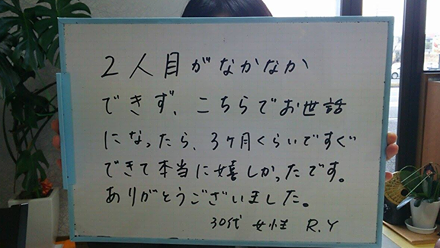 2人目がなかなか
できず、こちらでお世話
になったら、3ヶ月くらいですぐ
できて本当に嬉しかったです。
ありがとうございました。
30代 女性 R.Y